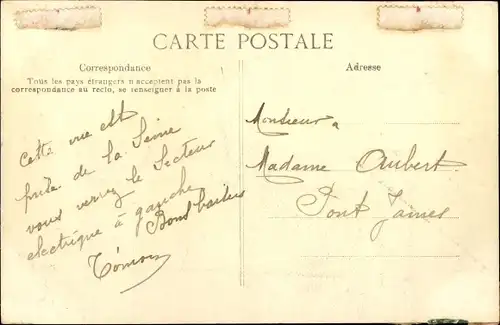 CARTE POSTALE
Correspondance
Tous les pays étrangers n'acceptent pas la
correspondance au recto, se renseigner à la poste
Cette vue est
prise de la Seine
vous verrez le Secteur
electrique à gauche
Bons baisers
Adresse
Monsieur &
Madame Aubert
Pont James